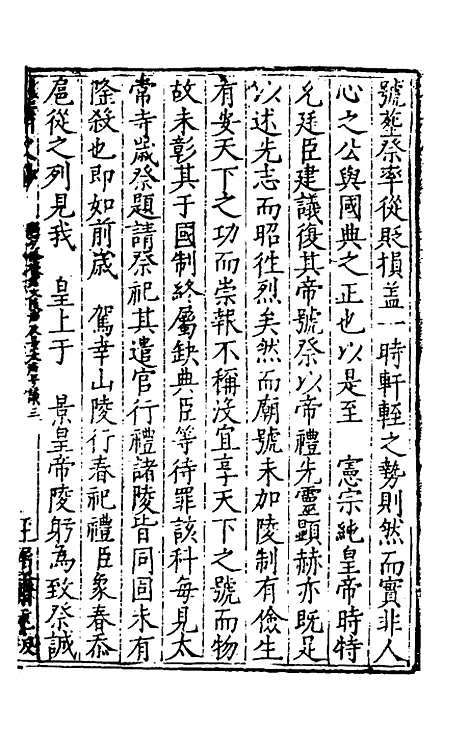 號塟祭率從貶損盖一時軒輊之勢則然而實非人
心之公與國典之正也以是至　憲宗純皇帝時特
允廷臣建議復其帝號祭以帝禮先靈顯赫亦既足
以述先志而昭徃烈矣然而廟號未加陵制有儉生
有安天下之功而崇報不稱沒宜享天下之號而物
故未彰其于國制終屬缺典臣等待罪該科每見太
常寺嵗祭題請祭祀其遣官行禮諸陵皆同固未有
隆殺也即如前嵗　駕幸山陵行春祀禮臣象春忝
扈從之列見我　皇上于　景皇帝陵躬為致祭誠